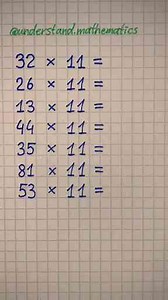 @understand.mathematics
32 × 11 =
26 × 11 =
13 × 11 =
44 × 11 =
35 × 11 =
81 × 11 =
53 × 11 =